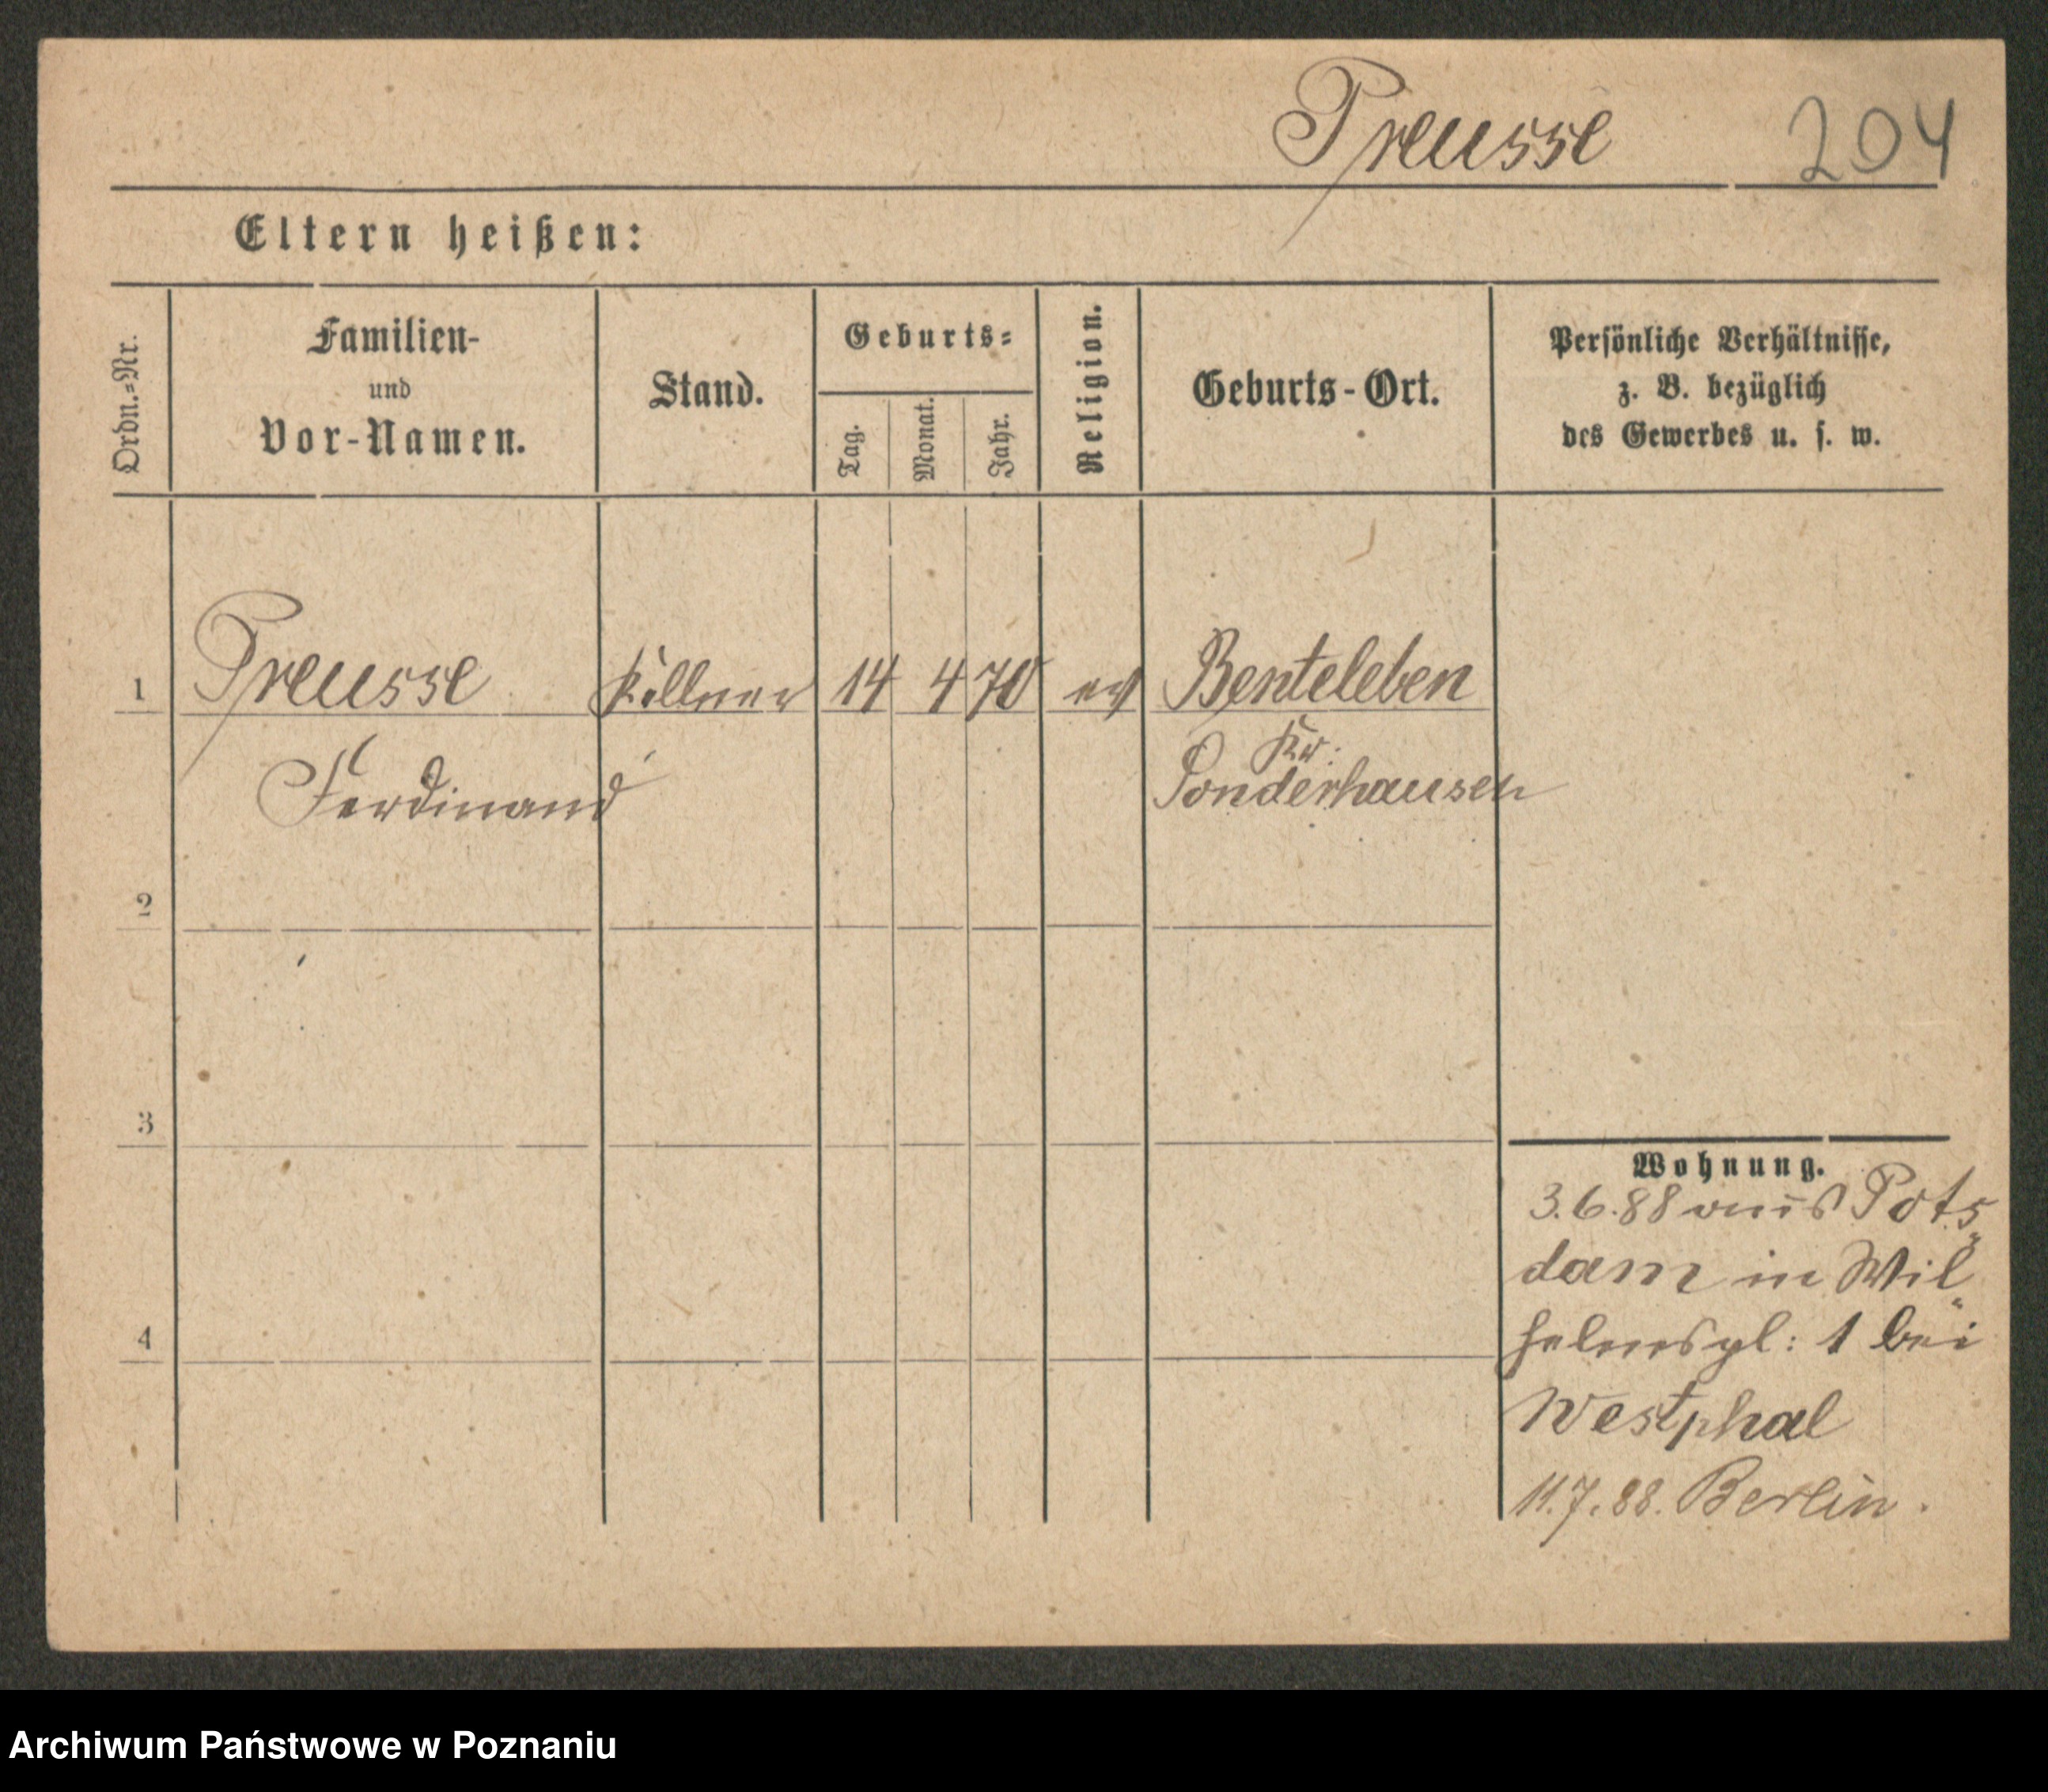 Preusse 204
Eltern heißen:
Ordn.=Nr.
Familien-
und
Vor-Namen.
Stand.
Geburts=
Tag.
Monat.
Jahr.
Religion.
Geburts-Ort.
Persönliche Verhältnisse,
z. B. bezüglich
des Gewerbes u. s. w.
1 Preusse Kellner 14 4 70 ev Benteleben
Kr:
Ferdinand Sonderhausen
2
3
4
Wohnung.
3.6.88 aus Pots„
dam in Wil„
helmspl: 1 bei
Westphal
11.7.88. Berlin.
Archiwum Państwowe w Poznaniu